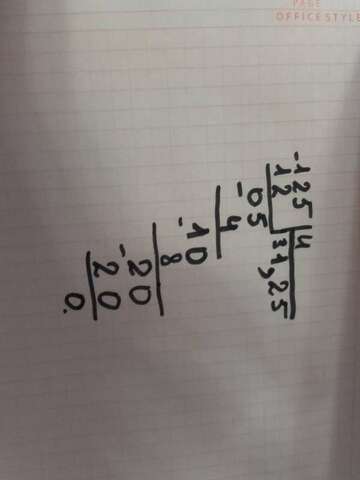 PAGE
OFFICE STYLE
-125 4
12 31,25
-05
4
-10
8
-20
20
0.